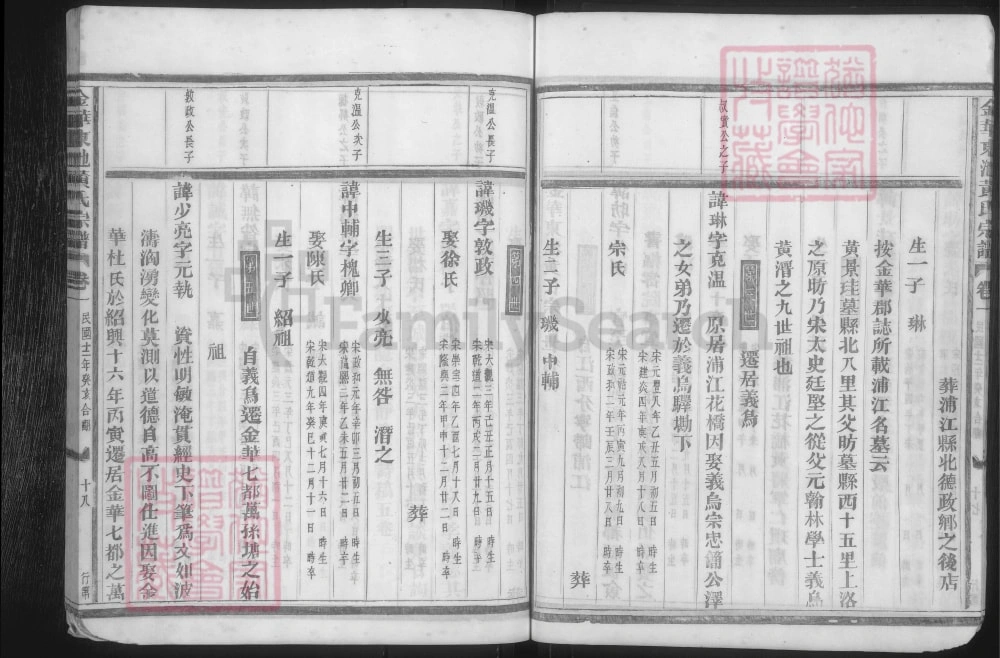 金華東池黃氏宗譜 卷一
葬浦江縣北德政鄉之後店
生一子 琳
按金華郡誌所載浦江名墓云
黃景珪墓縣北八里其父昉墓縣西十五里上洛
之原昉乃宋太史廷堅之從父元翰林學士義烏
黃溍之九世祖也
遷居義烏
叔賓公之子
諱琳字克溫 原居浦江花橋因娶義烏宗忠簡公澤
之女弟乃遷於義烏驛塘下
宋元豐八年乙丑五月初五日 時生
宋建炎四年庚戌六月十八日 時卒
宗氏
宋元祐元年丙寅九月初九日 時生
宋政和二年壬辰三月廿八日 時卒
葬
生二子 璣 中輔
克溫公長子
諱璣字敦政
宋大觀三年己丑正月十五日 時生
宋乾道二年丙戌二月廿九日 時卒
娶徐氏
宋崇寧四年乙酉七月十八日 時生
宋隆興二年甲申二月廿二日 時卒
葬
生三子 少亮 無咎 潛之
克溫公次子
諱中輔字槐卿
宋政和元年辛卯三月初五日 時生
宋淳熙二年乙未五月廿二日 時卒
娶陳氏
宋大觀四年庚寅七月十六日 時生
宋乾道九年癸巳十二月十一日 時卒
生一子 紹祖
自義烏遷金華七都萬孫塘之始
祖
敦政公長子
諱少亮字元執 資性明敏淹貫經史下筆為文如波
濤洶湧變化莫測以道德自高不圖仕進因娶金
華杜氏於紹興十六年丙寅遷居金華七都之萬
金華東池黃氏宗譜 卷一 民國十二年癸亥合修 十八 行第
FamilySearch